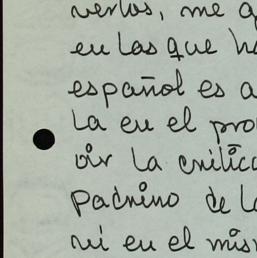 verlos, me
en las que
español es a
la en el
oír la crític
padrino de l
ni en el mis